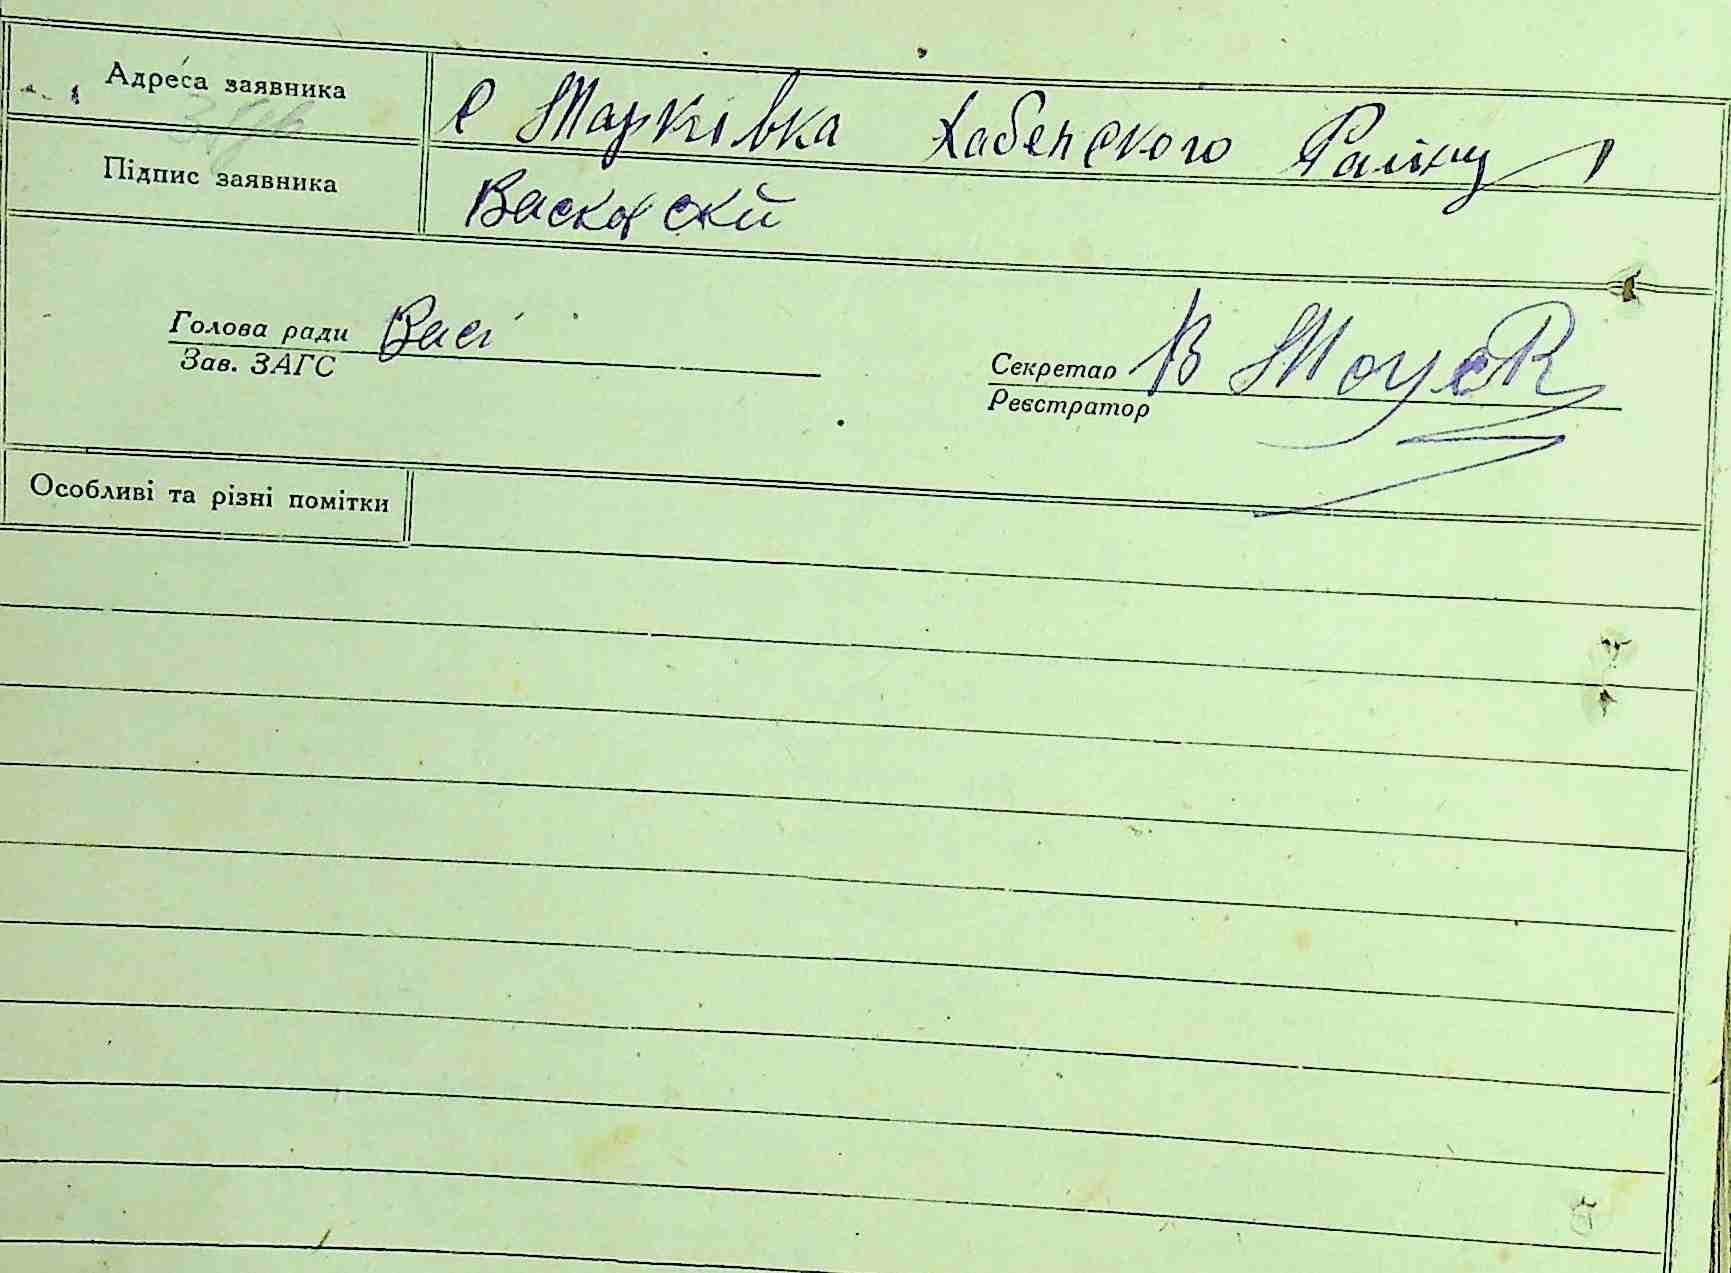 Адреса заявника с Марківка Хабенского Раіну
Підпис заявника Васковскй
Голова ради Васі
Зав. ЗАГС
Секретар В
Реєстратор
Особливі та різні помітки